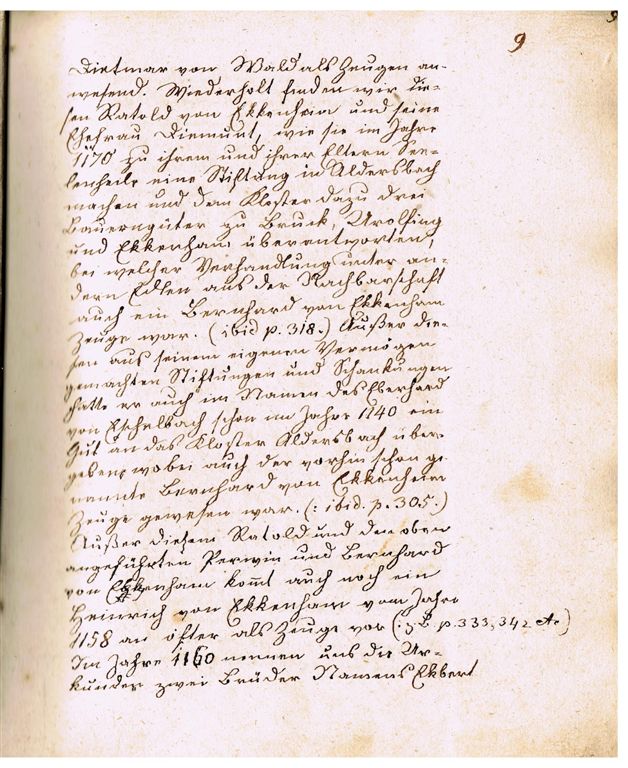 9
Dietmar von Wald als Zeugen an-
wesend. Wiederholt finden wir die-
sen Ratold von Ekkenheim und seine
Ehefrau Diemunt, wie sie im Jahre
1170 zu ihrem und ihrer Eltern See-
lenheile eine Stiftung in Aldersbach
machen und dem Kloster dazu drei
Bauerngüter zu Bruck, Urolfing
und Ekkenham überantworten,
bei welcher Verhandlung unter an-
dern Edlen aus der Nachbarschaft
auch ein Bernhard von Ekkenham
Zeuge war. (ibid p. 318.) Außer die-
sen aus seinem eigenen Vermögen
gemachten Stiftungen und Schankungen
hatte er auch im Namen des Eberhard
von Eschelbach schon im Jahre 1140 ein
Gut an das Kloster Aldersbach über-
geben, wobei auch der vorhin schon ge-
nannte Bernhard von Ekkenheim
Zeuge gewesen war. (: ibid. p. 305.)
Außer diesem Ratold und den oben
angeführten Perwin und Bernhard
von Ekkenham kom̄t auch noch ein
Heinrich von Ekkenham vom Jahre
1158 an öfter als Zeuge vor (: z. B. p. 333, 342 etc.)
Im Jahre 1160 nennen uns die Ur-
kunden zwei Brüder Namens Ekbert